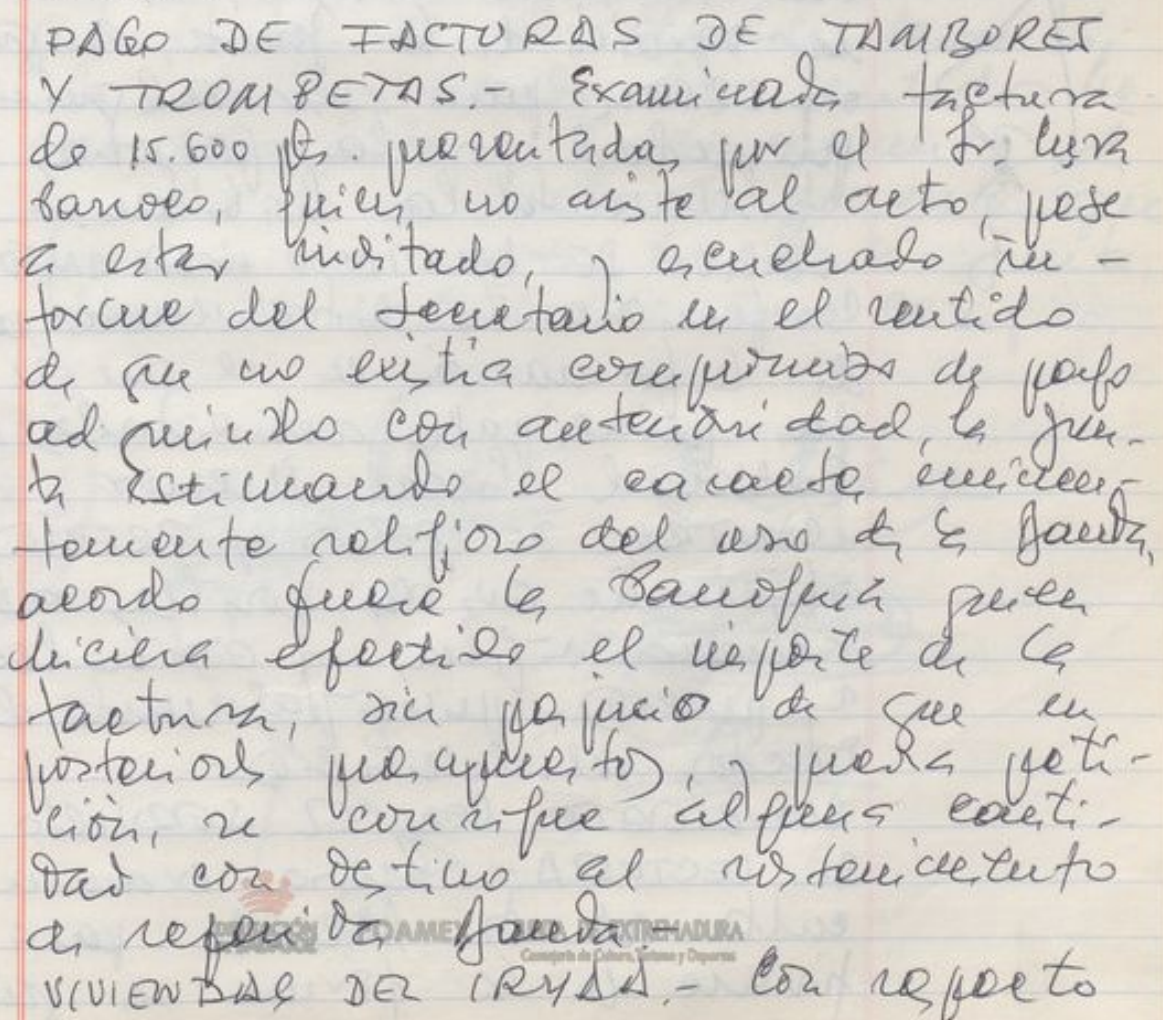 PAGO DE FACTURAS DE TAMBORES
Y TROMPETAS.- Examinada factura
de 15.600 pts. presentadas por el Sr. Cura
Párroco, quien no asiste al acto, pese
a estar invitado, y escuchado in-
forme del Secretario en el sentido
de que no existía compromiso de pago
adquirido con anterioridad, la Jun-
ta estimando el caracter eminen-
temente religioso del uso de la Banda,
acordo fuera la Parroquia quien
hiciera efectivo el importe de la
factura, sin perjuicio de que en
posteriores presupuestos, y previa peti-
ción, se consigne alguna canti-
dad con destino al sostenimiento
de referida Banda.-
DIPUTACIÓN DE BADAJOZ COAMEX JUNTA DE EXTREMADURA
Consejería de Cultura, Turismo y Deportes
VIVIENDAS DEL IRYDA.- Con respecto